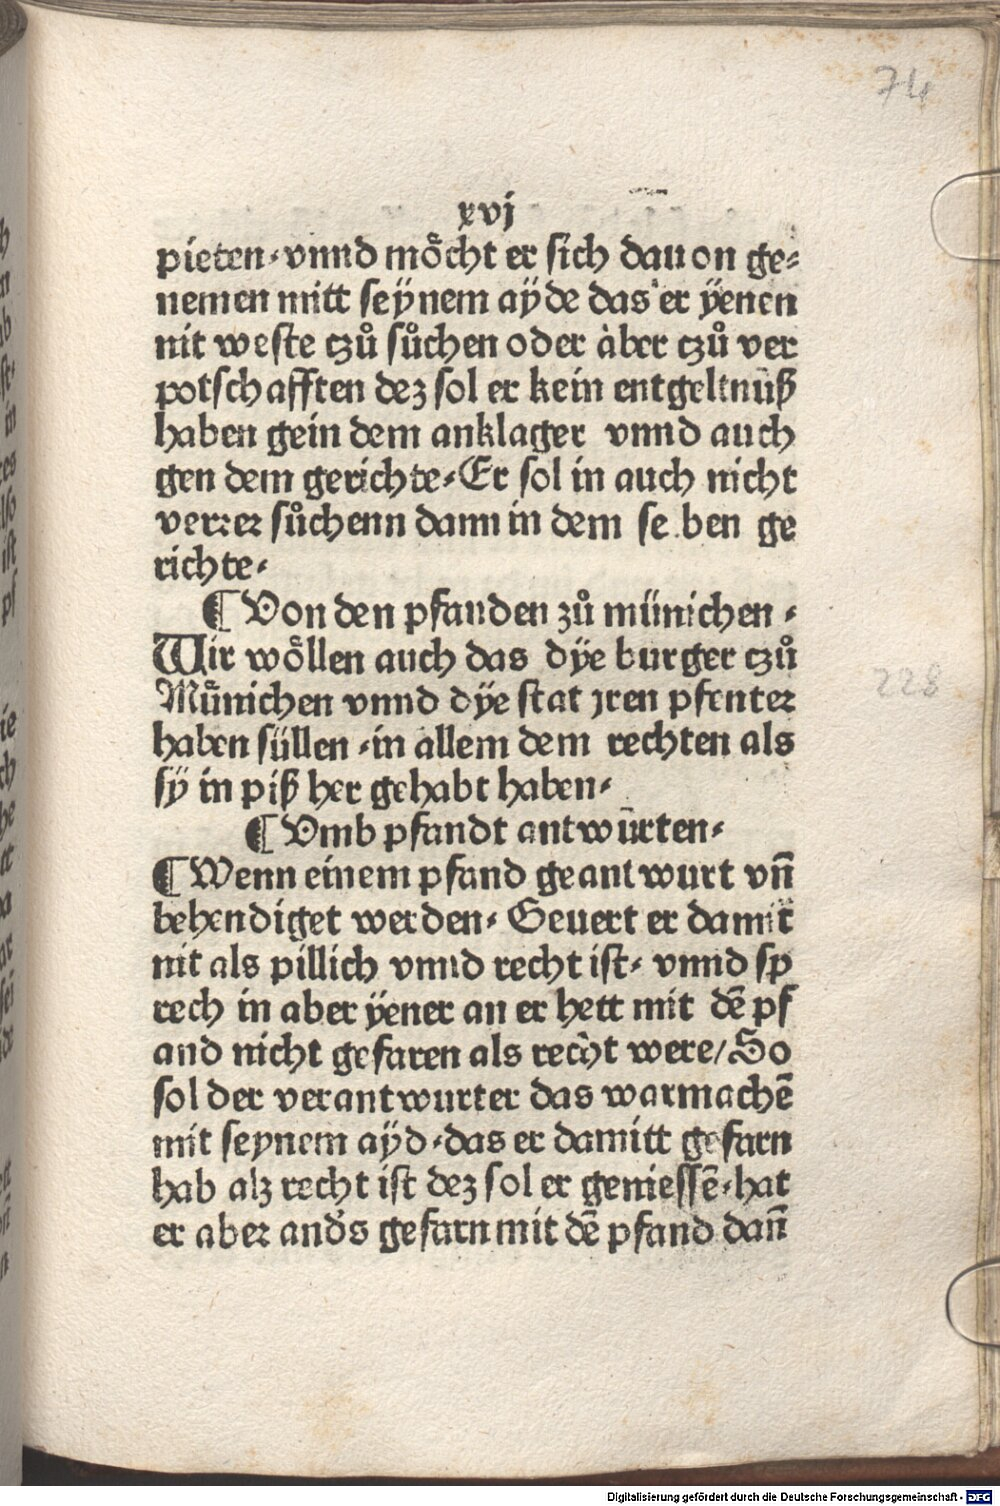 74
xvj
pieten·vnnd moͤcht er sich dauon ge⸗
nemen mitt seÿnem aÿde das er ÿenen
nit weste tzů sůchen oder àber tzů ver
potschafften dez sol er kein entgeltnüß
haben gein dem anklager vnnd auch
gen dem gerichte⸗Er sol in auch nicht
verrer sůchenn dann in dem se ben ge
richte⸗
¶ Von den pfanden zů münichen ⸗
Wir woͤllen auch das dÿe burger tzů
Műnichen vnnd dÿe stat jren pfenter
haben süllen ⸗in allem dem rechten als
sÿ in piß her gehabt haben⸗
¶ Vmb pfandt antwürten⸗
¶ Wenn einem pfand geantwurt vn̄
behendiget werden⸗ Geuert er damit
nit als pillich vnnd recht ist⸗ vnnd sp
rech in aber ÿener an er hett mit dē pf
and nicht gefaren als recht were/So
sol der verantwurter das warmachē
mit seynem aÿd⸗das er damitt gefarn
hab alz recht ist dez sol er geniessē⸗hat
er aber anďs gefarn mit dē pfand dan̄
228
Digitalisierung gefördert durch die Deutsche Forschungsgemeinschaft - DFG